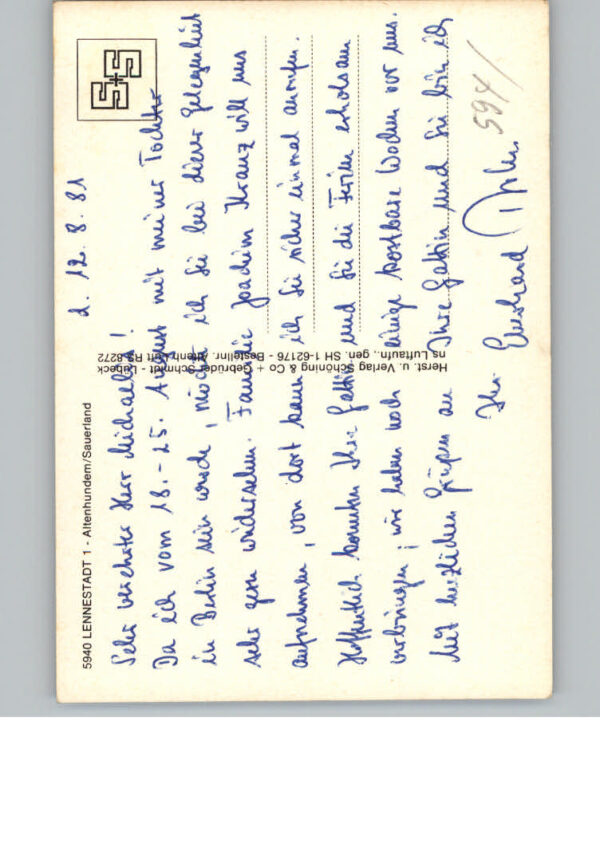 5940 LENNESTADT 1 - Altenhundem/Sauerland
S+S
d. 12. 8. 81
Sehr verehrter Herr Michaelis!
Da ich vom 18.-25. August mit meiner Tochter
in Berlin sein werde, möchte ich Sie bei dieser Gelegenheit
sehr gern wiedersehen. Familie Joachim Kranz will uns
aufnehmen, von dort kann ich Sie sicher einmal anrufen.
Hoffentlich konnten Ihre Gattin und Sie die Ferien erholsam
verbringen; wir haben noch einige kostbare Wochen vor uns.
Mit herzlichen Grüßen an Ihre Gattin und Sie bin ich
Ihr Eberhard
594/
Herst. u. Verlag Schöning & Co + Gebrüder Schmidt - Lübeck
ns Luftaufn., gen. SH 1-62176 - Bestellnr. Altenh Luft R3 8272